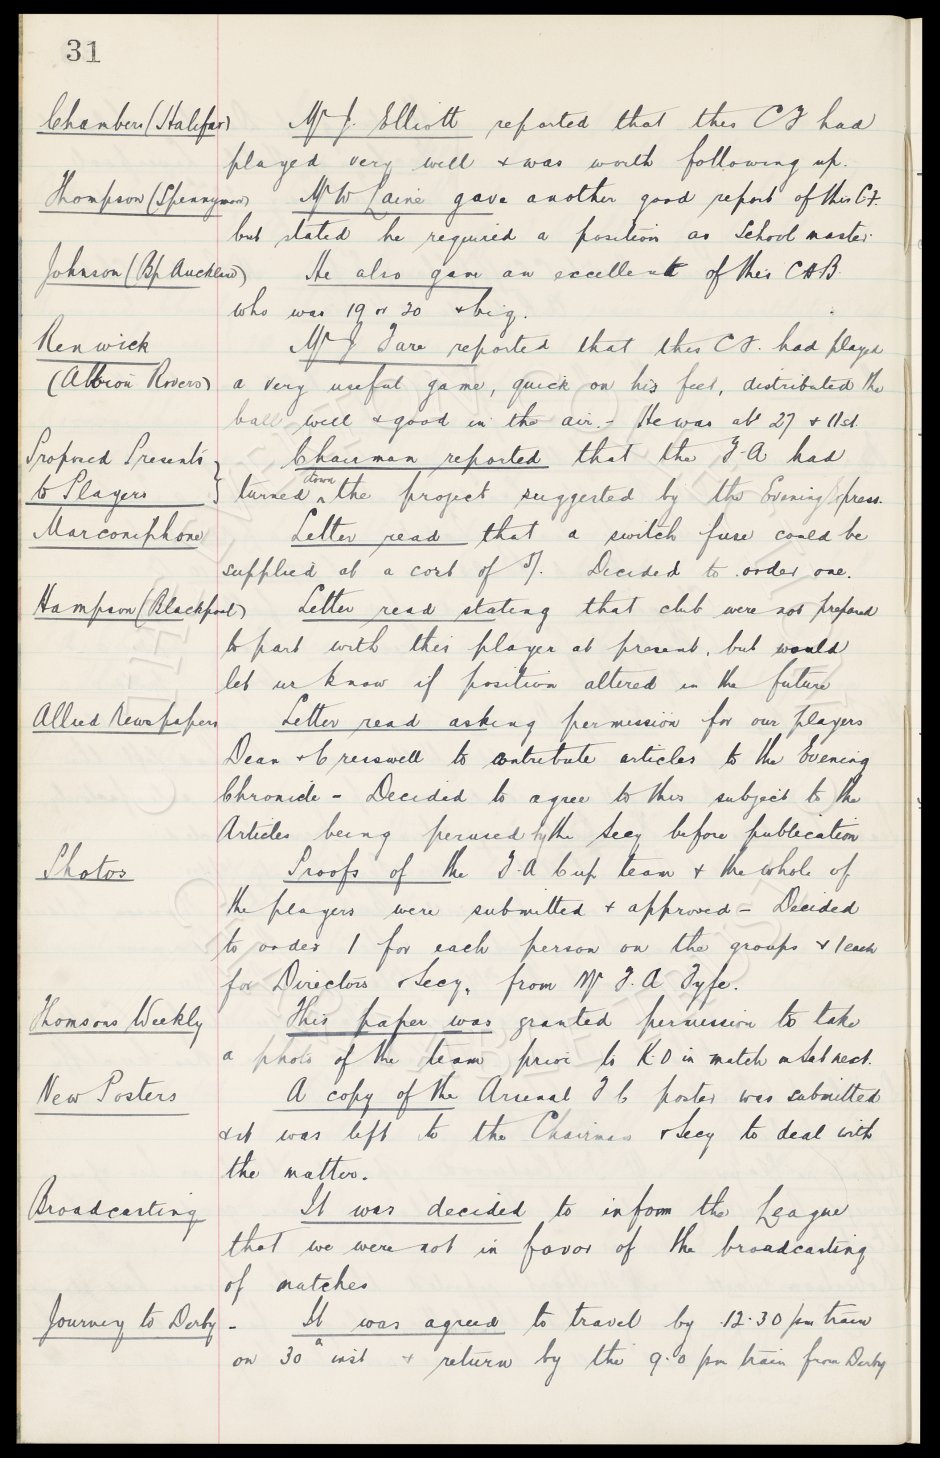 31
Chambers (Halifax) Mr J. Elliott reported that this C F had
played very well & was worth following up.
Thompson (Spennymoor) Mr W Laine gave another good report of this C.F.
but stated he required a position as School master.
Johnson (Bp Auckland) He also gave an excellent of this C H B
who was 19 or 20 & big.
Renwick Mr J Fare reported that this C F. had played
(Albion Rovers) a very useful game, quick on his feet, distributed the
ball well & good in the air. - He was abt 27 & 11st
Proposed Presents Chairman reported that the F.A had
to Players turned down the project suggested by the Evening Express.
Marconiphone Letter read that a switch fuse could be
supplied at a cost of 5/. Decided to order one.
Hampson (Blackpool) Letter read stating that club were not prepared
to part with this player at present, but would
let us know if position altered in the future
Allied Newspapers Letter read asking permission for our players
Dean & Cresswell to contribute articles to the Evening
Chronicle - Decided to agree to this subject to the
Articles being perused by the Secy before publication
Photos Proofs of the F.A Cup team & the whole of
the players were submitted & approved - Decided
to order 1 for each person on the groups & 1 each
for Directors & Secy, from Mr F. A Fyfe.
Thomsons Weekly This paper was granted permission to take
a photo of the team prior to K.O in match on Sat next.
New Posters A copy of the Arsenal F C poster was submitted
& it was left to the Chairman & Secy to deal with
the matter.
Broadcasting It was decided to inform the League
that we were not in favor of the broadcasting
of matches
Journey to Derby - It was agreed to travel by 12.30 pm train
on 30th inst & return by the 9.0 pm train from Derby